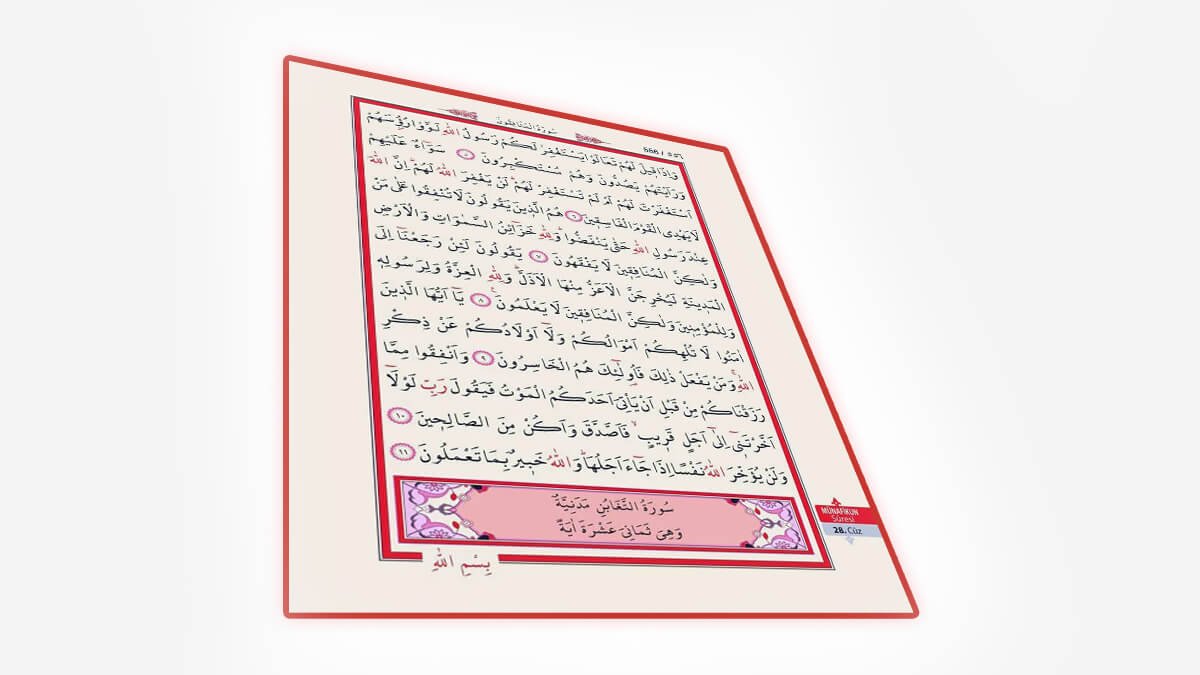 سُورَةُ الْمُنَافِقُونَ
٥٥٥ / 555
وَاِذَا ق۪يلَ لَهُمْ تَعَالَوْا يَسْتَغْفِرْ لَكُمْ رَسُولُ اللّٰهِ لَوَّوْا رُؤُ۫سَهُمْ
وَرَاَيْتَهُمْ يَصُدُّونَ وَهُمْ مُسْتَكْبِرُونَ ٥ سَوَٓاءٌ عَلَيْهِمْ
اَسْتَغْفَرْتَ لَهُمْ اَمْ لَمْ تَسْتَغْفِرْ لَهُمْۜ لَنْ يَغْفِرَ اللّٰهُ لَهُمْۜ اِنَّ اللّٰهَ
لَا يَهْدِي الْقَوْمَ الْفَاسِق۪ينَ ٦ هُمُ الَّذ۪ينَ يَقُولُونَ لَا تُنْفِقُوا عَلٰى مَنْ
عِنْدَ رَسُولِ اللّٰهِ حَتّٰى يَنْفَضُّواۜ وَلِلّٰهِ خَزَٓائِنُ السَّمٰوَاتِ وَالْاَرْضِ
وَلٰكِنَّ الْمُنَافِق۪ينَ لَا يَفْقَهُونَ ٧ يَقُولُونَ لَئِنْ رَجَعْنَٓا اِلَى
الْمَد۪ينَةِ لَيُخْرِجَنَّ الْاَعَزُّ مِنْهَا الْاَذَلَّۜ وَلِلّٰهِ الْعِزَّةُ وَلِرَسُولِه۪
وَلِلْمُؤْمِن۪ينَ وَلٰكِنَّ الْمُنَافِق۪ينَ لَا يَعْلَمُونَ۟ ٨ يَٓا اَيُّهَا الَّذ۪ينَ
اٰمَنُوا لَا تُلْهِكُمْ اَمْوَالُكُمْ وَلَٓا اَوْلَادُكُمْ عَنْ ذِكْرِ
اللّٰهِۚ وَمَنْ يَفْعَلْ ذٰلِكَ فَاُو۬لٰٓئِكَ هُمُ الْخَاسِرُونَ ٩ وَاَنْفِقُوا مِمَّا
رَزَقْنَاكُمْ مِنْ قَبْلِ اَنْ يَأْتِيَ اَحَدَكُمُ الْمَوْتُ فَيَقُولَ رَبِّ لَوْلَٓا
اَخَّرْتَن۪ٓي اِلٰٓى اَجَلٍ قَر۪يبٍۙ فَاَصَّدَّقَ وَاَكُنْ مِنَ الصَّالِح۪ينَ ١٠
وَلَنْ يُؤَخِّرَ اللّٰهُ نَفْسًا اِذَا جَٓاءَ اَجَلُهَاۜ وَاللّٰهُ خَب۪يرٌ بِمَا تَعْمَلُونَ ١١
سُورَةُ التَّغَابُنِ مَدَنِيَّةٌ
وَهِيَ ثَمَانِيَ عَشْرَةَ اٰيَةً
بِسْمِ اللّٰهِ
MÜNAFİKUN
Sûresi
28. Cüz